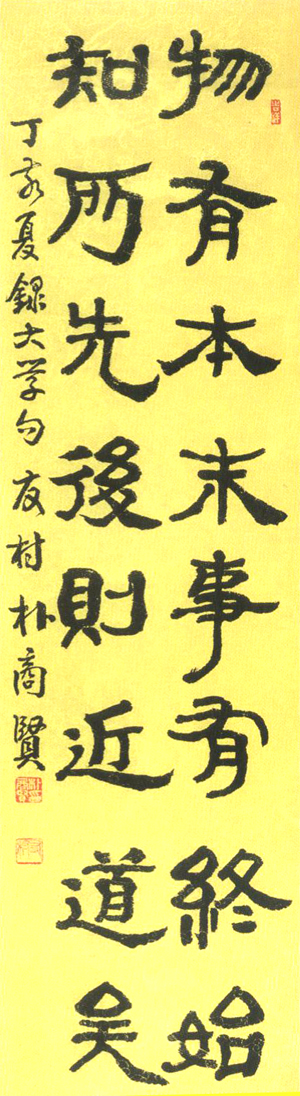 物有本末事有終始
知所先後則近道矣
丁亥夏錄大学句友村朴商賢